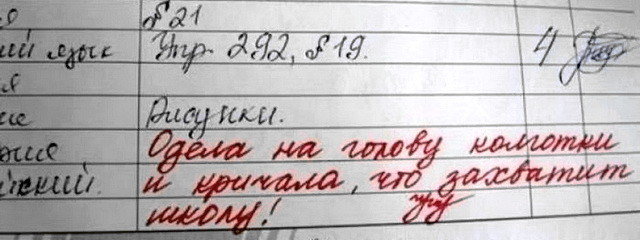 § 21
ий язык Упр 292, § 19. 4
Рисунки.
Одела на голову колготки
и кричала, что захватит
школу!